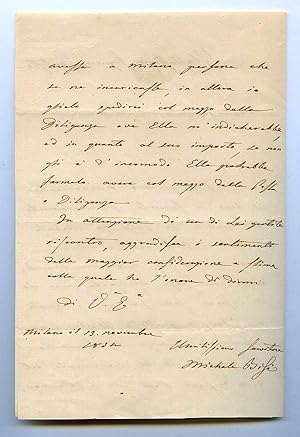 avesse a Milano persona che
se ne incaricasse in allora io
glielo spedirei col mezzo della
Diligenza ove Ella m'indicherebbe,
ed in quanto al suo importo, se non
gli è d'incomodo Ella potrebbe
farmelo avere col mezzo della Posta
o Diligenza
In attenzione di un di Lei gentile
riscontro, aggradisca i sentimenti
della maggior considerazione e stima
colla quale ho l'onore di dirmi
Di V.ª E.ª
Milano il 13. novembre
1834
Umilissimo Servitore
Michele Bisi